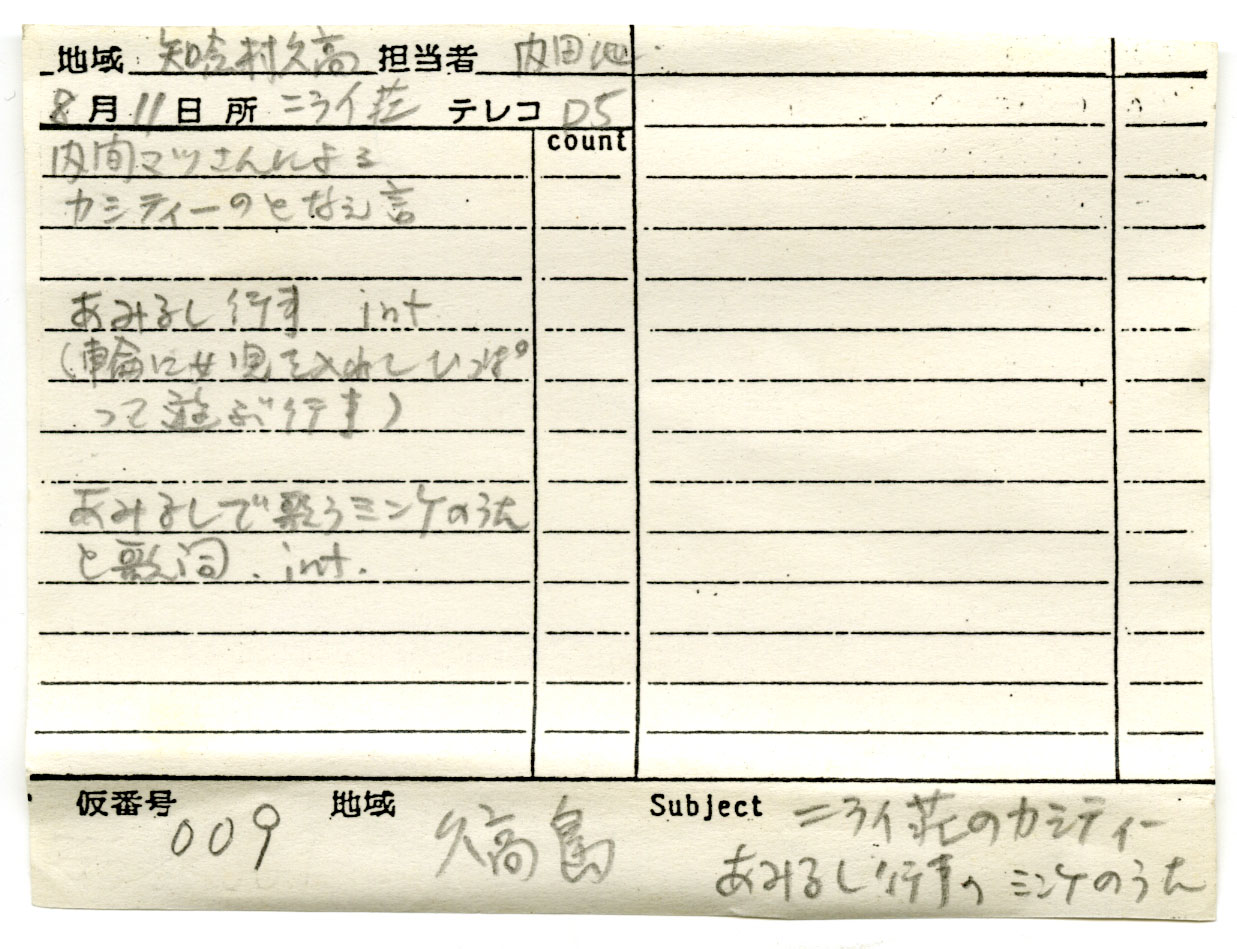 地域 知念村久高 担当者 内田
8月11日 所 ニライ荘 テレコ D5
count
内間マツさんによる
カシティーのとなえ言
あみるし行事 int.
(車輪に女児を入れてひっぱ
って遊ぶ行事)
あみるしで歌うミンケのうた
と歌詞. int.
仮番号 009 地域 久高島 Subject ニライ荘のカシティー
あみるし行事、ミンケのうた